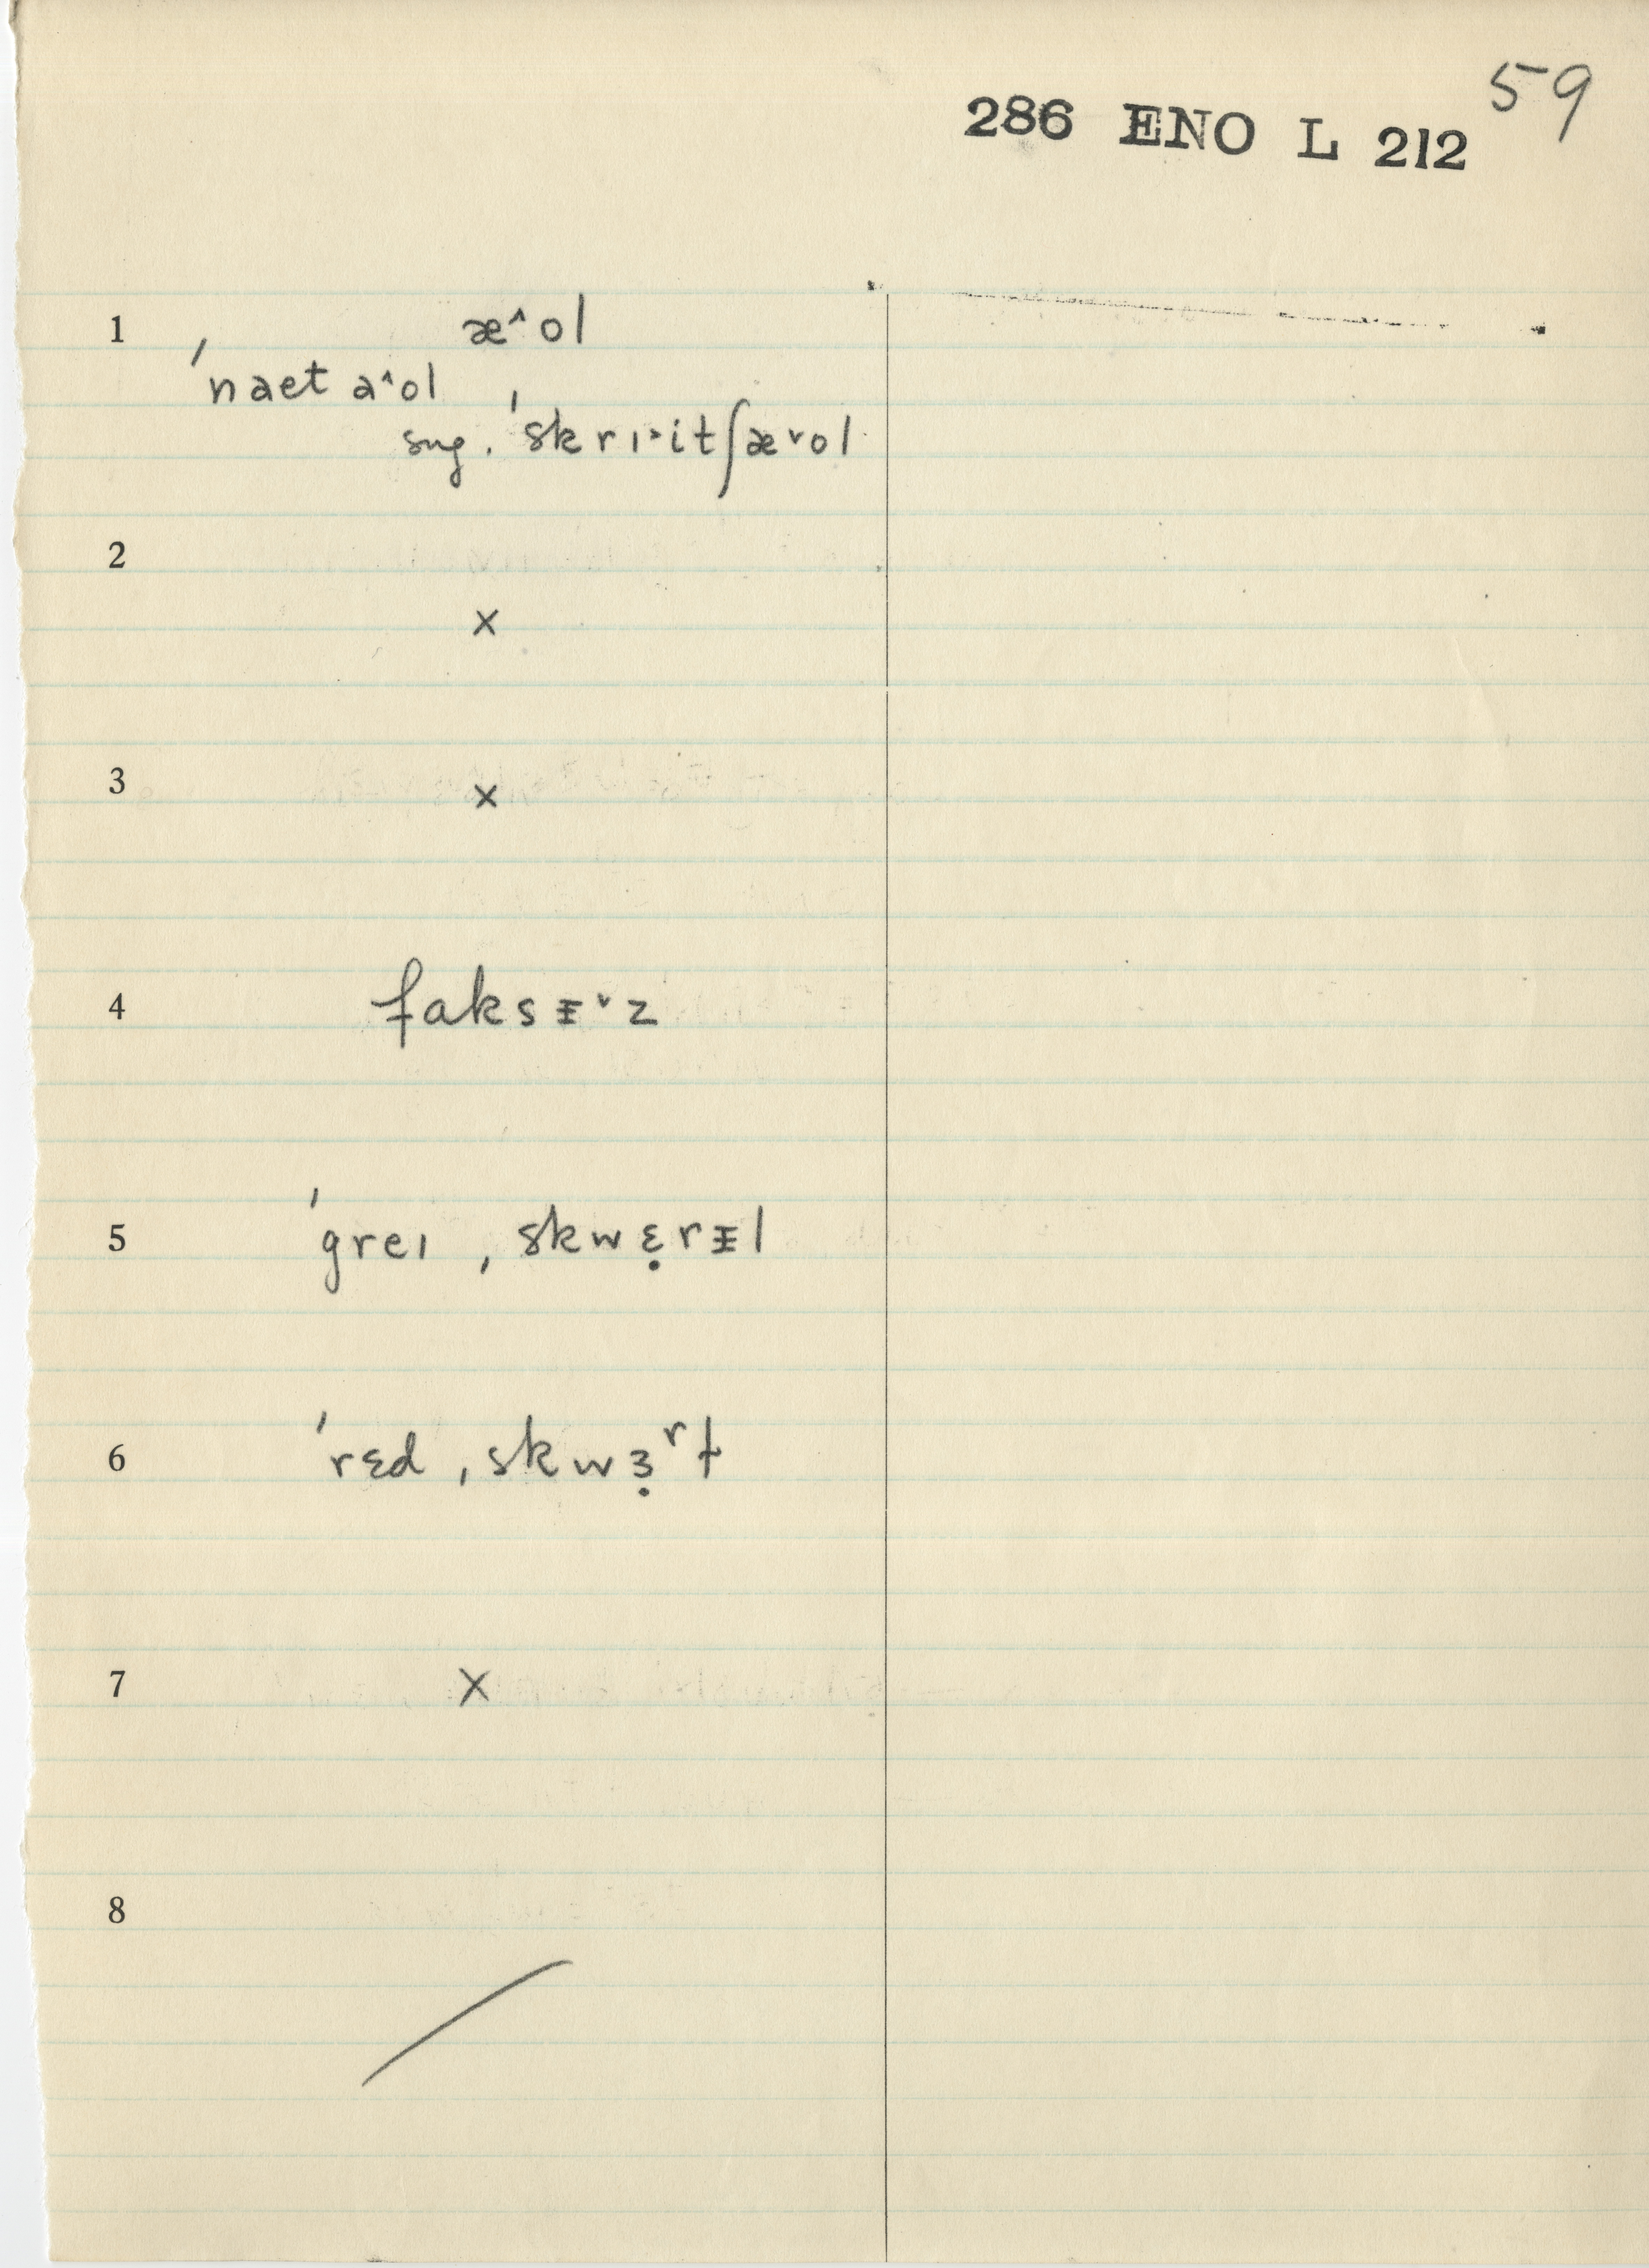 59
286 ENO L 212
1 æ˄ol
ˈnaet a˄ol
sug. ˈskrɪ˃itʃæ˅ol
2
×
3 ×
4 faksᵻ˅z
5 ˈgreɪ ˌskwɛ̣rᵻl
6 ˈrɛd ˌskwɜ̣ʳɫ
7 ×
8
/